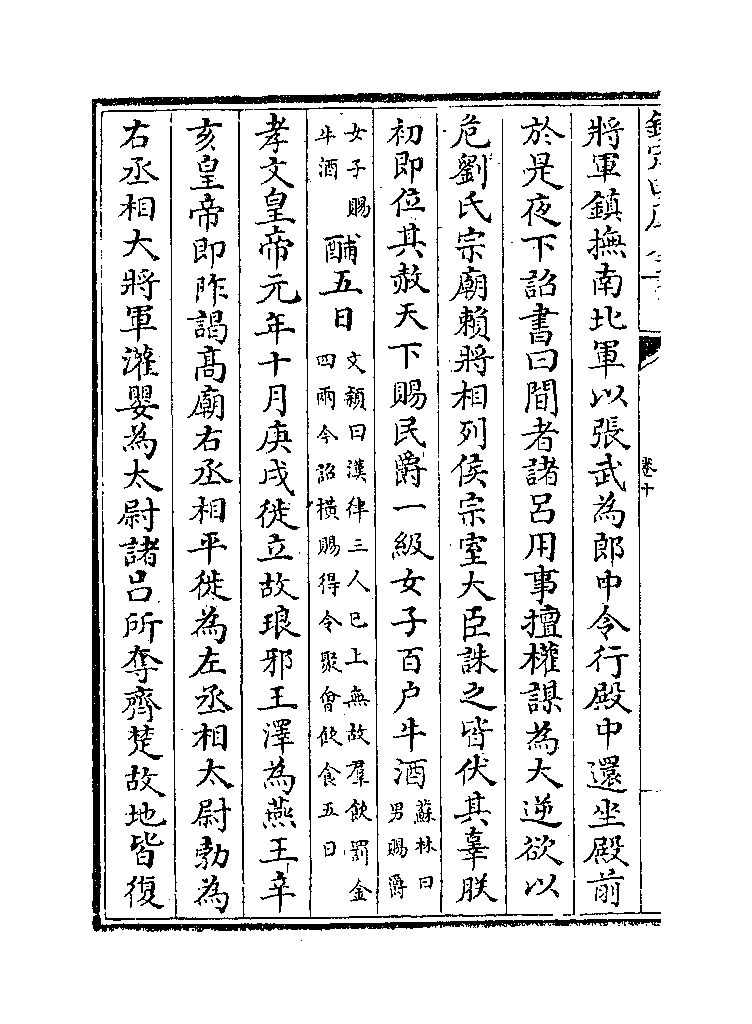 將軍鎮撫南北軍以張武為郎中令行殿中還坐殿前
於是夜下詔書曰間者諸呂用事擅權謀為大逆欲以
危劉氏宗廟賴將相列侯宗室大臣誅之皆伏其辜朕
初即位其赦天下賜民爵一級女子百户牛酒蘇林曰男賜爵
女子賜牛酒酺五日文頴曰漢律三人已上無故羣飲罰金四兩今詔横賜得令聚㑹飲食五日
孝文皇帝元年十月庚戌徙立故琅邪王澤為燕王辛
亥皇帝即阼謁髙廟右丞相平徙為左丞相太尉勃為
右丞相大將軍灌嬰為太尉諸呂所奪齊楚故地皆復
卷十